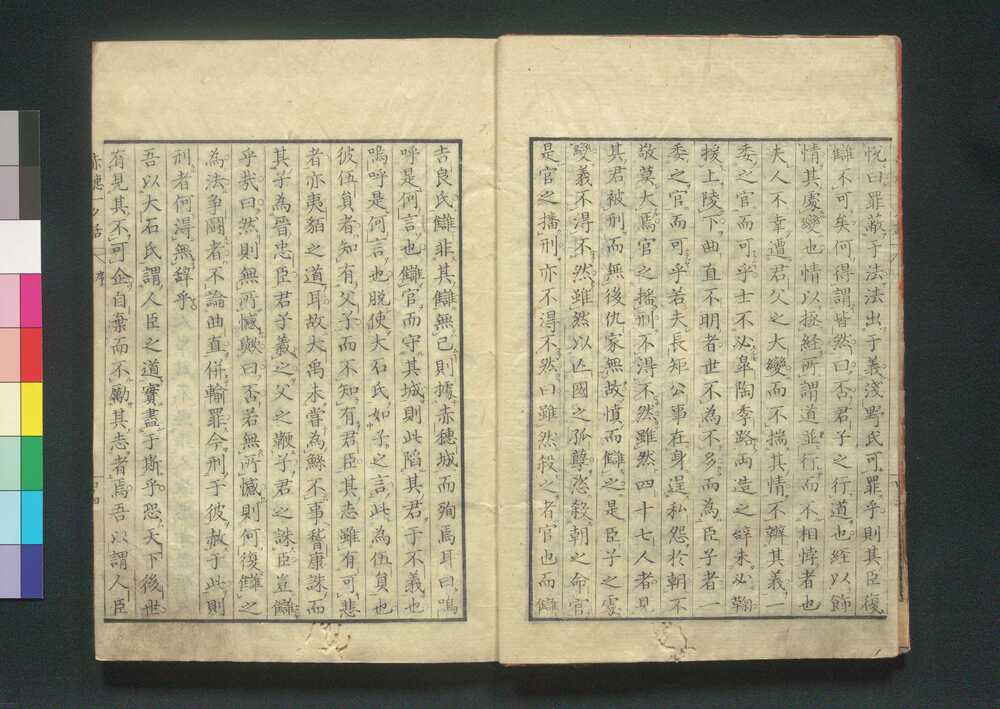 悦曰罪蔽于法法出于義浅野氏可罪乎則其臣復
讎不可矣何得謂皆然曰否君子之行道也経以飾
情其處變也情以拯経所謂道並行而不相悖者也
夫人不幸遭君父之大變而不揣其情不辨其義一
委之官而可乎士不必皐陶季路両造之辞未必鞠
援上陵下曲直不明者世不為不多而為臣子者一
委之官而可乎若夫長矩公事在身逞私怨於朝不
敬莫大焉官之播刑不得不然雖然四十七人者見
其君被刑而無後仇家無故憤而讎之是臣子之處
變義不得不然雖然以亾國之孤孽恣殺朝之命官
是官之播刑亦不得不然曰雖然殺之者官也而讎
吉良氏讎非其讎無已則據赤穂城而殉焉耳曰嗚
呼是何言也讎官而守其城則此陥其君于不義也
嗚呼是何言也脱使大石氏如子之言此為伍負也
彼伍負者知有父子而不知有君臣其志雖有可悲
者亦夷貊之道耳故大禹未嘗為鯀不事嵆康誅而
其子為晉忠臣君子義之父之鞭子君之誅臣豈讎
乎哉曰然則無所憾與曰否若無所憾則何復讎之
為法争闘者不論曲直併輸罪今刑于彼赦于此則
刑者何得無辞乎
吾以大石氏謂人臣之道實盡于斯乎恐天下後世
有見其不可企自棄而不勵其志者焉吾以謂人臣
赤穂一夕話
序